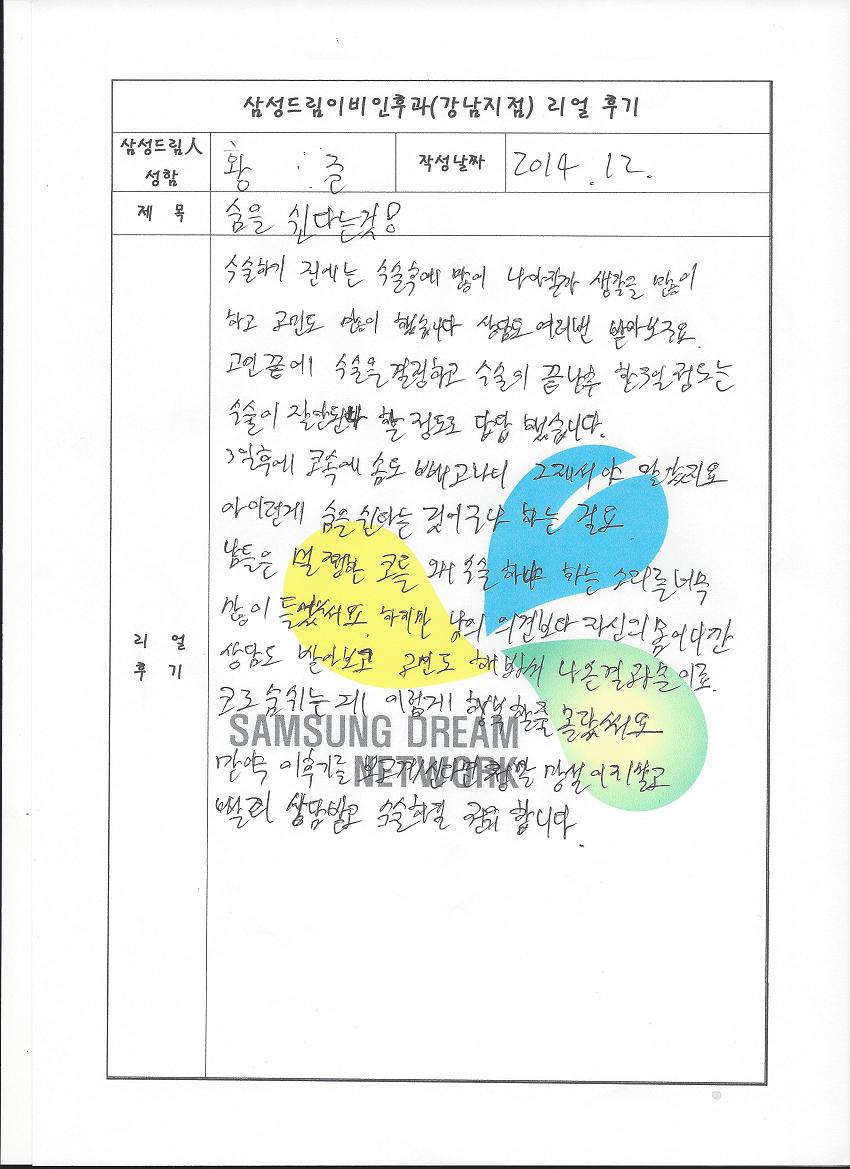 삼성드림이비인후과(강남지점) 리얼 후기
삼성드림人 성함
황 준
작성날짜
2014.12.
제 목
숨을 쉰다는것!
리 얼 후 기
수술하기 전에는 수술후에 많이 나아질까 생각을 많이
하고 고민도 많이 했습니다 상담도 여러번 받아보구요.
고민끝에 수술을 결정하고 수술이 끝난후 한3일정도는
수술이 잘안된나 할정도로 답답 했습니다.
3일후에 코속에 솜도 빼고나니 그래서야 알겠지요
아 이런게 숨을 쉰다는 것이구나 하는 걸요
남들은 멀쩡한 코를 왜 수술 하냐 하는 소리를 너무
많이 들었써요. 하지만 남의 의견보다 자신의 몸이니깐
상담도 받아보고 고민도 해봐서 나온결과들 이죠.
코로 숨쉬는게 이렇게 행복할줄 몰랐써요
만약 이후기를 보고계신다면 정말 망설이지말고
빨리 상담받고 수술하길 권유 합니다.
SAMSUNG DREAM
NETWORK